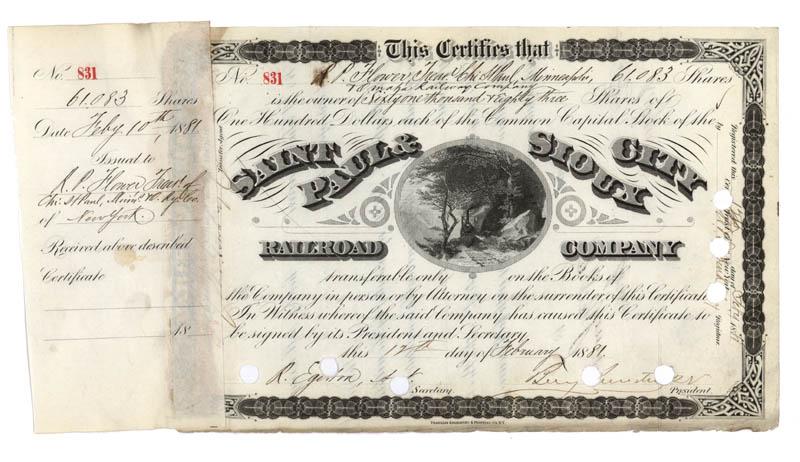 No. 831
61083 Shares
Date Feby. 10th, 1881
Issued to
R. P. Flower Treas. of
Chi. St Paul, Minns. &
of New York.
Received above described
Certificate
18
Transfer Agent
This Certifies that
No. 831 R. P. Flower, Treas Chi St Paul, Minneapolis, 61.083 Shares
Omaha Railway Company
is the owner of Sixty one thousand & eighty three Shares of
One Hundred Dollars each of the Common Capital Stock of the
SAINT PAUL & SIOUX CITY
RAILROAD COMPANY
transferable only on the Books of
the Company in person or by Attorney on the surrender of this Certificate
In Witness whereof the said Company has caused this Certificate to
be signed by its President and Secretary
this 12th day of February 1881.
R. Egerton, Secretary. President.
Registered this
Registrar